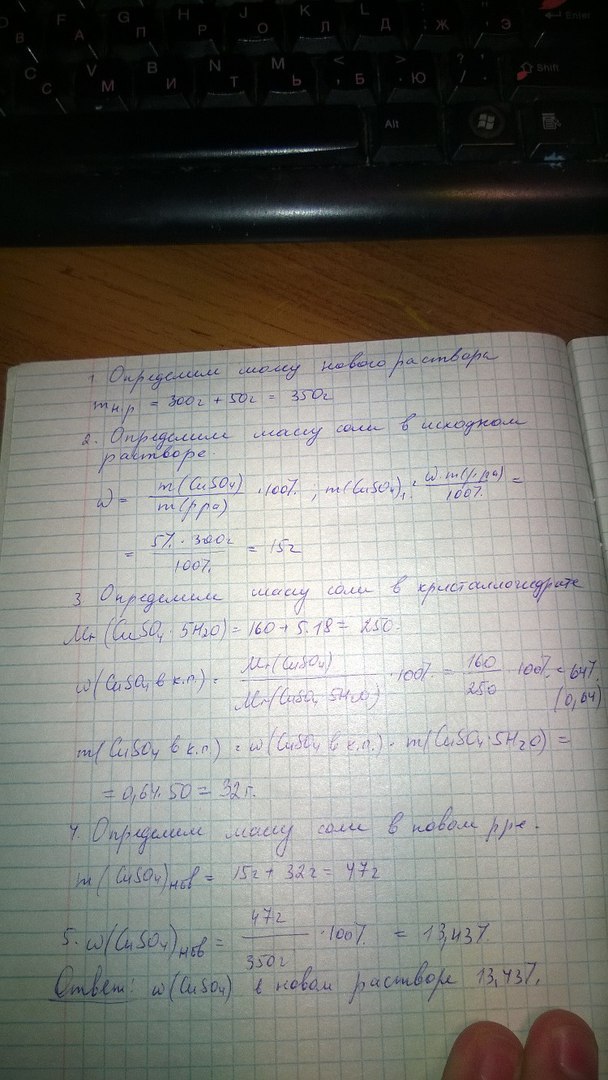 В F А G П H Р J О K Л L Д : ; Ж " ' Э Enter
C С V М B И N Т M Ь < , Б > . Ю ? / . Shift
Alt
1 Определим массу нового раствора
m н.р = 300г + 50г = 350г
2. Определим массу соли в исходном
растворе
ω = m(CuSO4) / m(р-ра) · 100% ; m(CuSO4)1 = ω·m(р-ра) / 100% =
= 5% · 300г / 100% = 15г
3 Определим массу соли в кристаллогидрате
Mr (CuSO4 · 5H2O) = 160 + 5·18 = 250.
ω(CuSO4 в к.п.) = Mr(CuSO4) / Mr(CuSO4·5H2O) · 100% = 160 / 250 · 100% = 64%
(0,64)
m(CuSO4 в к.п) = ω(CuSO4 в к.п.) · m(CuSO4·5H2O) =
= 0,64·50 = 32г.
4. Определим массу соли в новом р-ре.
m (CuSO4)нов = 15г + 32г = 47г
5. ω(CuSO4)нов = 47г / 350г · 100% = 13,43%
Ответ: ω(CuSO4) в новом растворе 13,43%.